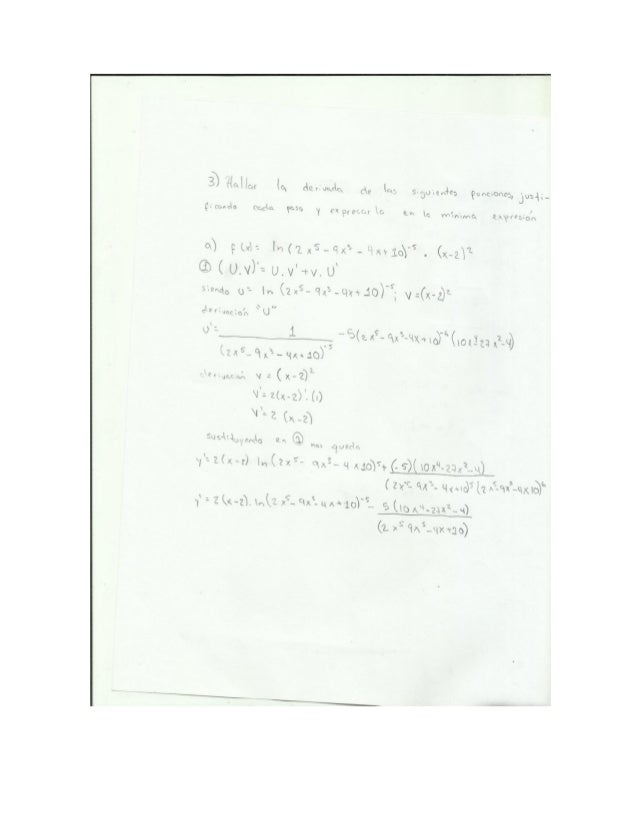 3) Hallar la derivada de las siguientes funciones, justi-
ficando cada paso y exprecarlo en la mínima expresión
a) f(x)= ln(2x⁵-9x³-4x+10)⁻⁵ · (x-2)²
① (U.V)'= U.V'+V.U'
siendo U= ln (2x⁵-9x³-4x+10)⁻⁵; V=(x-2)²
derivación "U"
U'= 1/(2x⁵-9x³-4x+10)⁻⁵ -5(2x⁵-9x³-4x+10)⁻⁶(10x⁴-27x²-4)
derivación V=(x-2)²
V'=2(x-2)'.(1)
V'=2 (x-2)
sustituyendo en ① nos queda
y'=2(x-2) ln(2x⁵-9x³-4x10)⁻⁵+ (-5)(10x⁴-27x²-4)/(2x⁵-9x³-4x+10)⁻⁵(2x⁵-9x³-4x10)⁶
y'=2(x-2).ln(2x⁵-9x³-4x+10)⁻⁵- 5(10x⁴-27x²-4)/(2x⁵ 9x³-4x+10)